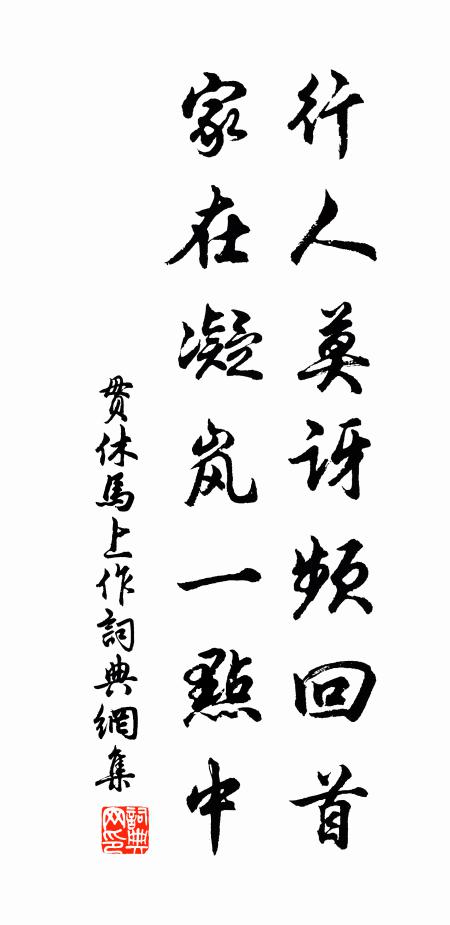 行人莫讶频回首
家在凝岚一點中
贯休馬上作詞典網集
詞典网印